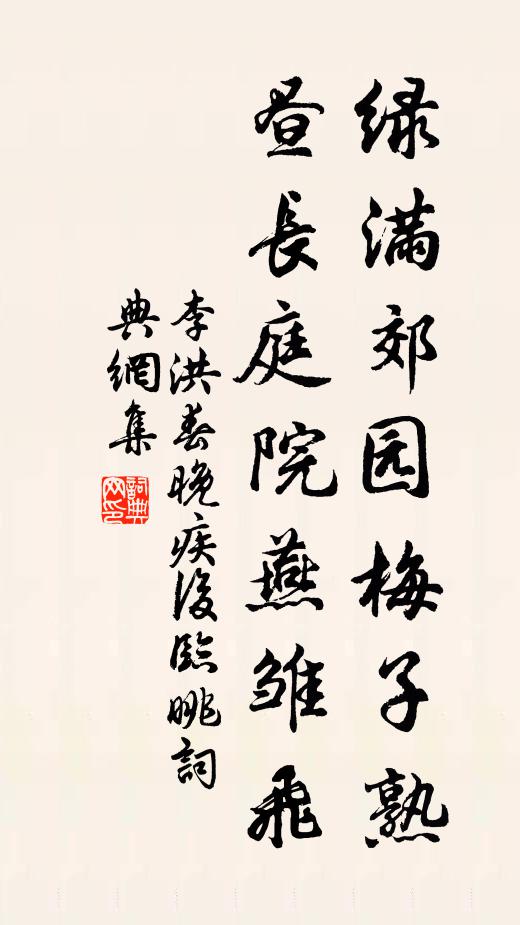 绿满郊园梅子熟
昼長庭院燕雏飛
李洪春晚疾後臨眺詞
典網集
詞典网印